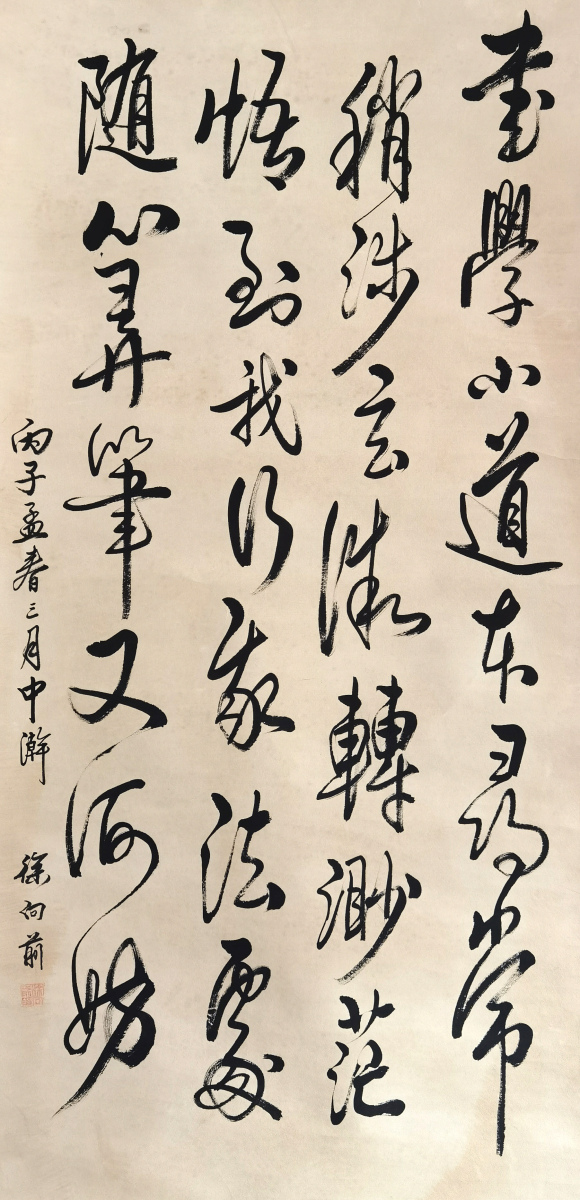 書學小道本尋常
稍涉玄微轉渺茫
悟到我行我法處
随心弄筆又何妨
丙子孟春三月中澣 徐向前